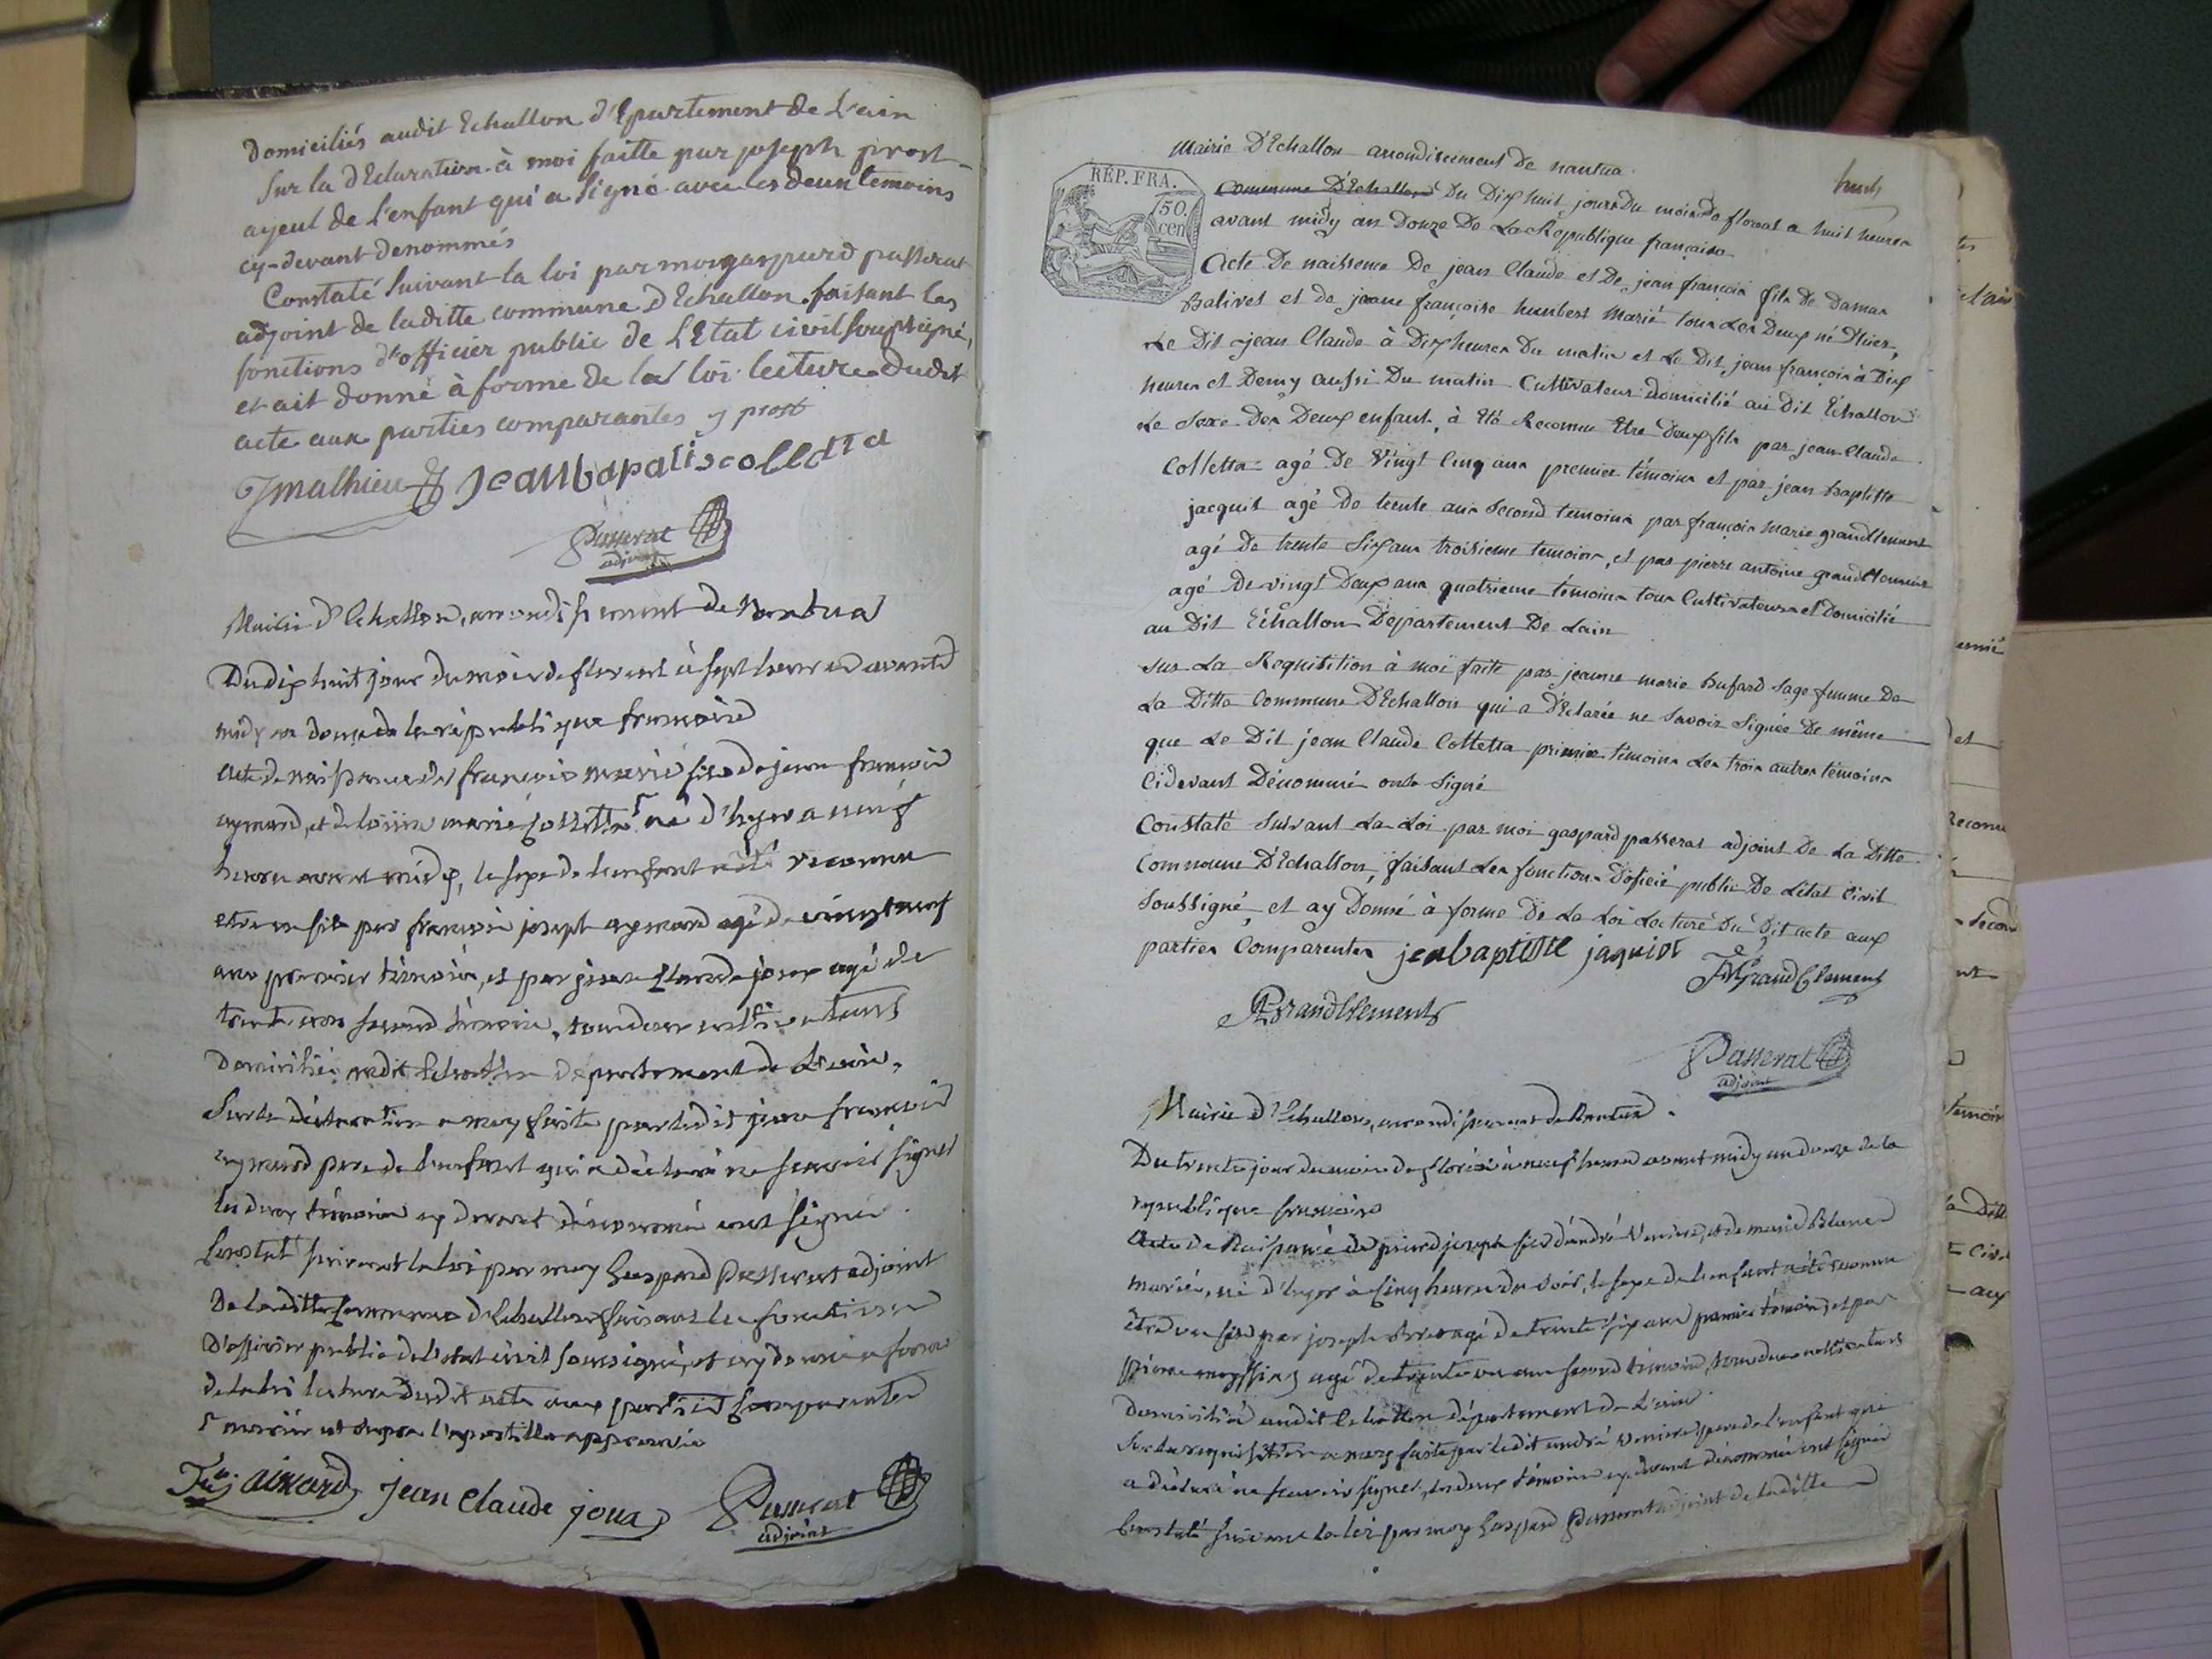 Domiciliés audit Echallon d'Epartement de L'ain
Sur la d'Eclaration à moi faitte par joseph prost
ayeul de l'enfant qui a signé avec les deux temoins
cy-devant denommés
Constaté suivant la loi par moy gaspard passerat
adjoint de laditte commune d'Echallon faisant les
fonctions d'officier public de L'Etat civil soussigné,
et ait donné à forme de la loi lecture dudit
acte aux parties comparantes j prost
Jmathieu jeanbapatiscolletta
Passerat
adjoint
Mairie d'Echallon, arrondissement de Nantua
Du dix huit jour du mois de floreal à sept heures avant
midy an douze de la république francoise
Acte de naissance de francois marie fils de jean francois
aymard, et de marie Colletta né d'hyer a neuf
heures avant midy, le sexe de l'enfant a été reconnu
etre un fils par francois joseph aymard agé de vingt neuf
ans premier témoin, et par jean Claude joux agé de
trente ans second témoin, tous deux cultivateurs
Domiciliés audit Echallon département de L'ain,
Sur la déclaration a moy faite par ledit jean francois
aymard pere de l'enfant qui a déclaré ne scavoir signer
les deux témoins cy devant dénommés ont signé
Constaté suivant la loi par moy Gaspard Passerat adjoint
De laditte Commune d'Echallon faisant les fonctions
D'officier public de l'etat civil soussigné, et ay donné a forme
de la loi lecture dudit acte aux parties Comparantes
l'apostille approuvée
aimard jean Claude joux Passerat
adjoint
Mairie D'Echallon arrondissement de nantua
RÉP. FRA.
50.
cen
Commune D'Echallon Du Dix huit jour du mois de floreal a huit heures
avant midy an Douze De La Republique française
Acte De naissence De jean Claude et De jean françois fils De Damas
Balivet et de jeanne françoise humbert Marié tous Les Deux né Hier,
Le Dit jean Claude à Dix heures Du matin et Le Dit jean françois à Dix
heures et Demy aussi Du matin Cultivateur Domicilié au Dit Echallon
Le Sexe Des Deux enfant, à Eté Reconnu Etre Deux fils par jean Claude
Colletta agé De Vingt Cinq ans premier témoins et par jean baptiste
jacquit agé De trente ans Second temoins par françois marie grandClement
agé De trente Six ans troisieme temoins, et par pierre antoine grandClement
agé De vingt Deux ans quatrieme témoins tous Cultivateurs et Domicilié
au Dit Echallon Département De Lain
Sur La Requisition à moi faite par jeanne marie bufard Sage femme De
La Ditte Commune D'Echallon qui a D'Eclarée ne Savoir Signée De même
que Le Dit jean Claude Colletta premier témoins Les trois autres témoins
Cidevant Dénommé onts Signé
Constaté Suivant La Loi par moi gaspard passerat adjoint De La Ditte
Commune D'Echallon, faisant Les fonctions D'oficié public De L'état Civil
Soussigné, et ay Donné à forme De La Loi Lecture Du Dit acte aux
parties Comparentes jeabaptiste jaquiot
fMGrandClement
PAGrandClement
Passerat
adjoint
Mairie d'Echallon, arrondissement de Nantua.
Du trente jour du mois de floréal à neuf heures avant midy an douze de la
republique francoise
Acte de Naissance de joseph fils d'andré et de marie Blanc
mariés, né d'hyer à Cinq heures du soir, le sexe de l'enfant a été reconnu
être un fils par joseph agé de trente six ans premier témoin, et par
agé de trente un ans second témoin, tous deux cultivateurs
Domiciliés audit Echallon département de L'ain
Sur la requisition a moy faite par ledit andré pere de l'enfant qui
a déclaré ne scavoir signer, les deux témoins cy devant dénommés ont signé
Constaté suivant la loi par moy Gaspard Passerat adjoint de laditte